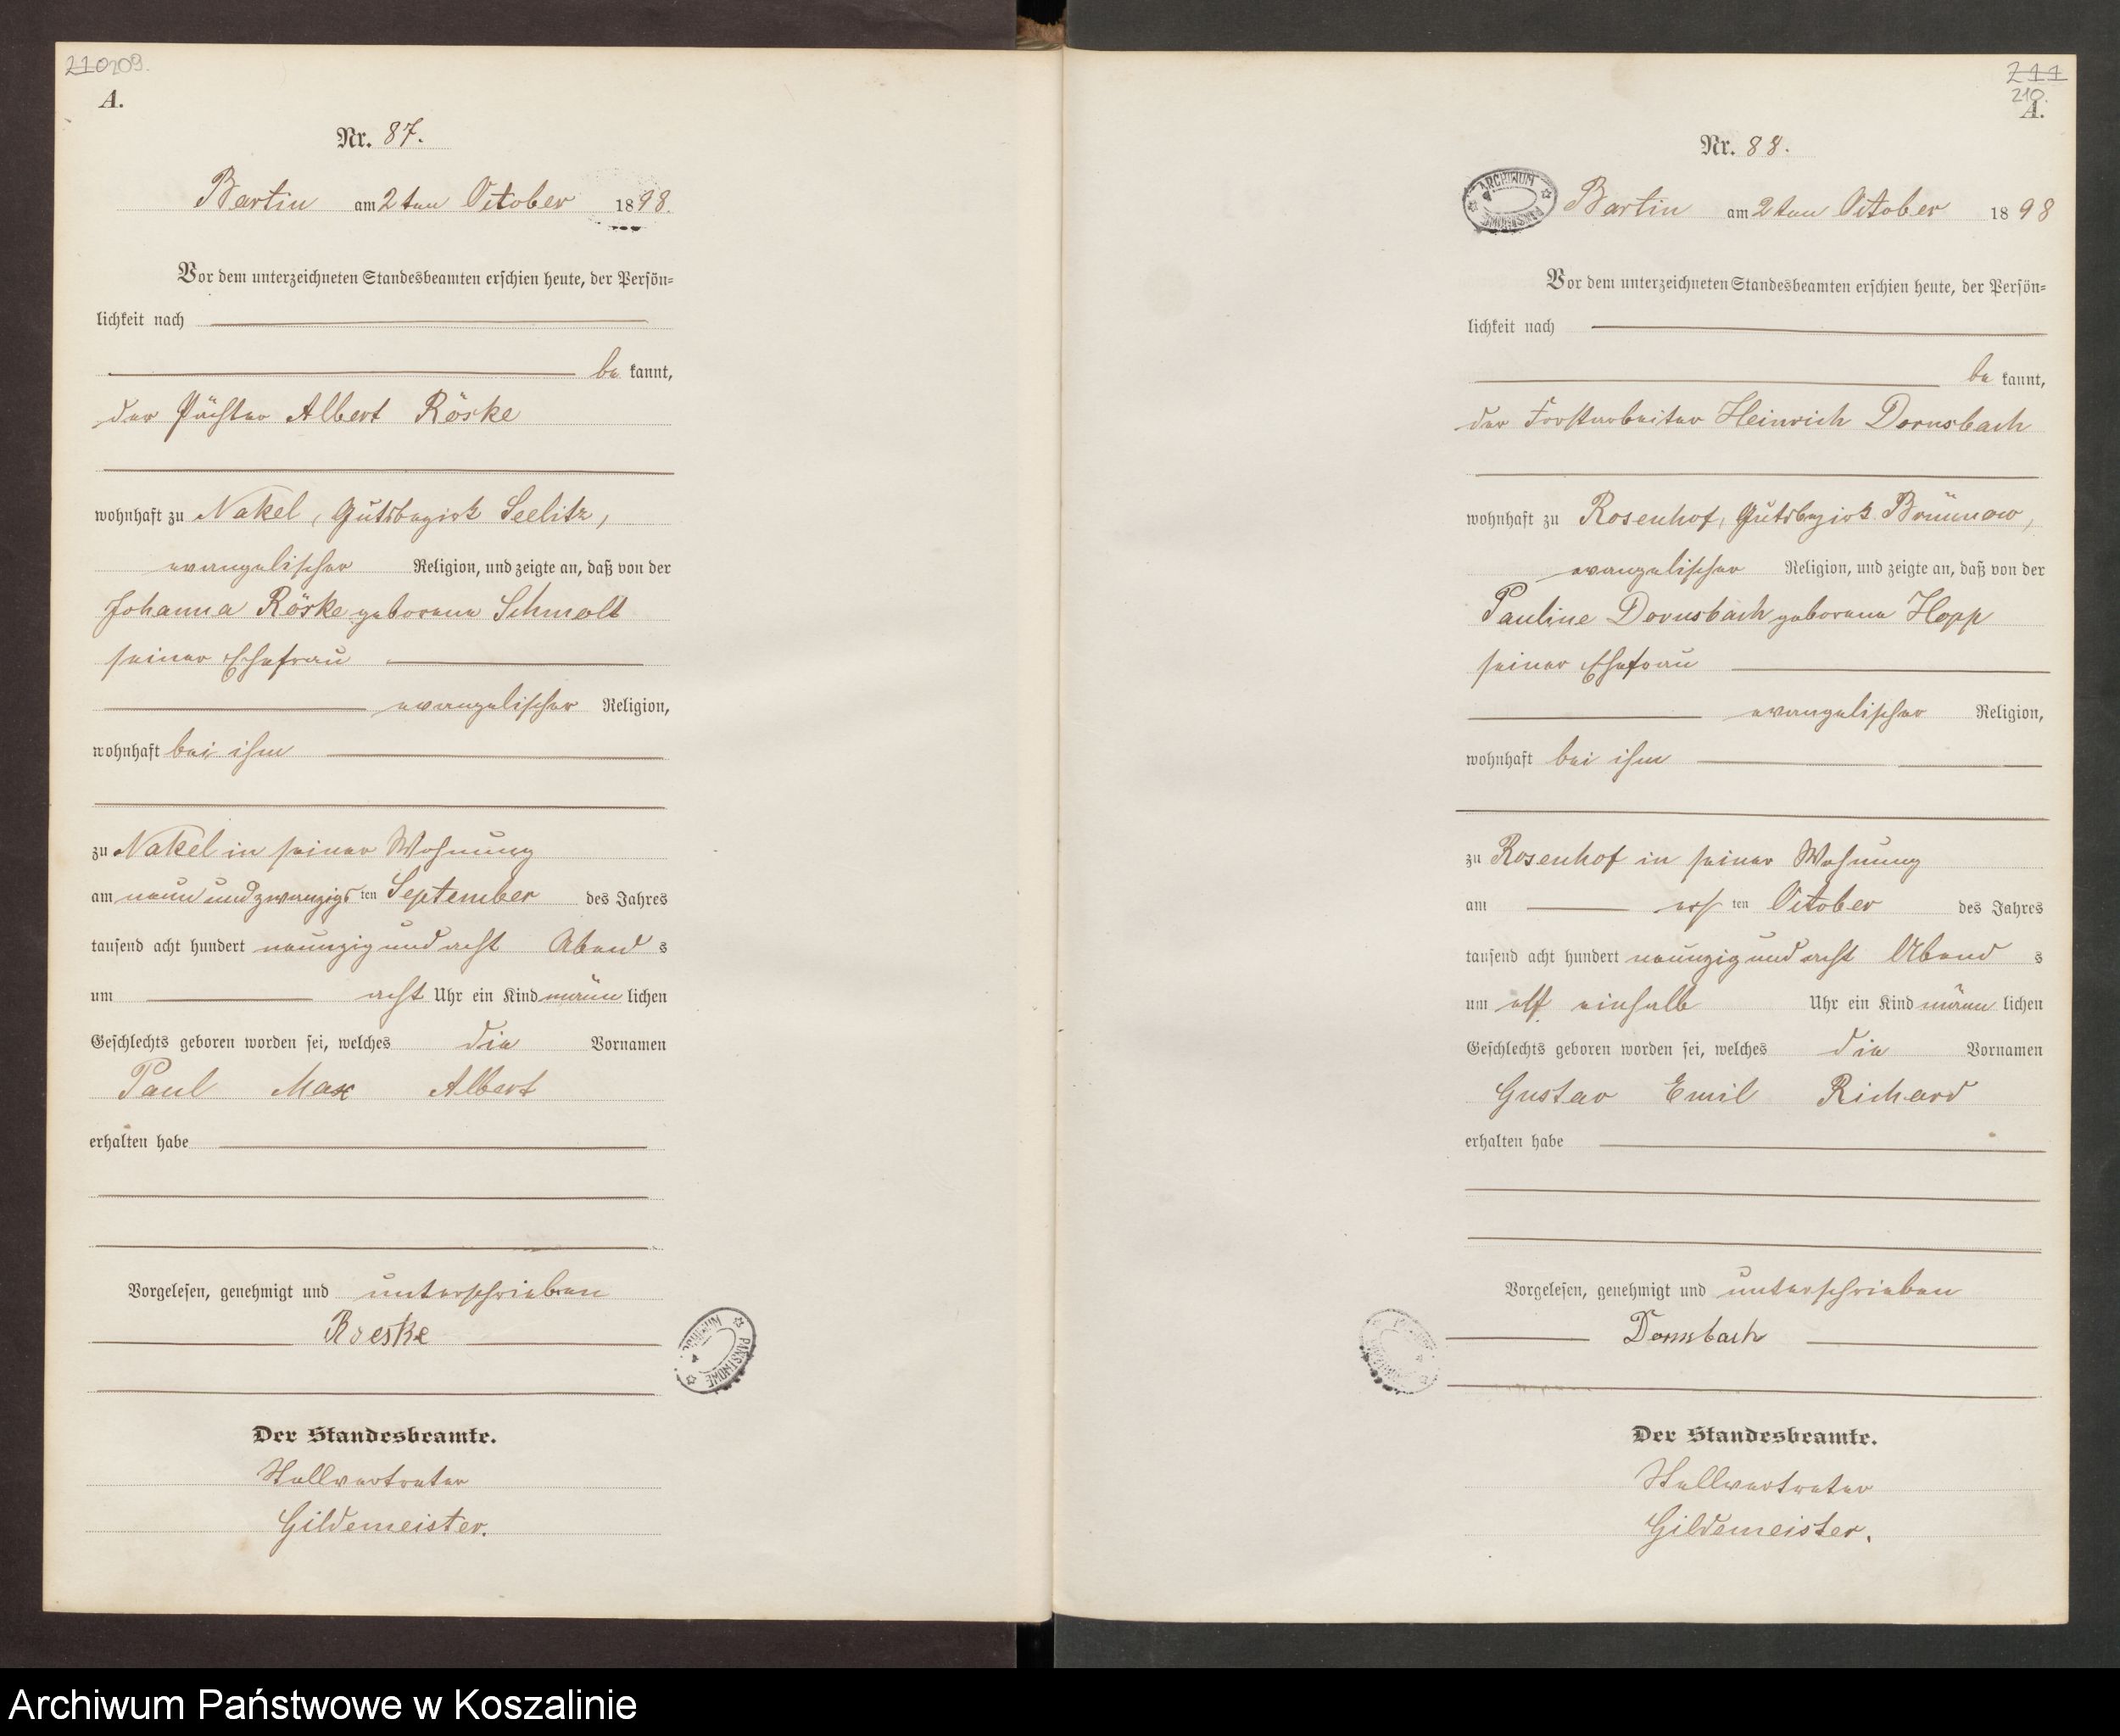 210 209.
A.
Nr. 87.
Bartin am 2ten October 1898.
Vor dem unterzeichneten Standesbeamten erschien heute, der Persön=
lichkeit nach
be kannt,
der Pächter Albert Röske
wohnhaft zu Nakel, Gutsbezirk Seelitz,
evangelischer Religion, und zeigte an, daß von der
Johanna Röske geborene Schmolt
seiner Ehefrau
evangelischer Religion,
wohnhaft bei ihm
zu Nakel in seiner Wohnung
am neunundzwanzigs ten September des Jahres
tausend acht hundert neunzig und acht Abend s
um acht Uhr ein Kind männ lichen
Geschlechts geboren worden sei, welches die Vornamen
Paul Max Albert
erhalten habe
Vorgelesen, genehmigt und unterschrieben
Roeske
Der Standesbeamte.
Stellvertreter
Gildemeister.
ARCHIWUM PAŃSTWOWE
211
210.
A.
Nr. 88.
ARCHIWUM PAŃSTWOWE
Bartin am 2ten October 1898
Vor dem unterzeichneten Standesbeamten erschien heute, der Persön=
lichkeit nach
be kannt,
der Forstarbeiter Heinrich Dornsbach
wohnhaft zu Rosenhof, Gutsbezirk Brünnow,
evangelischer Religion, und zeigte an, daß von der
Pauline Dornsbach geborene Hopp
seiner Ehefrau
evangelischer Religion,
wohnhaft bei ihm
zu Rosenhof in seiner Wohnung
am ers ten October des Jahres
tausend acht hundert neunzig und acht Abend s
um elf einhalb Uhr ein Kind männ lichen
Geschlechts geboren worden sei, welches die Vornamen
Gustav Emil Richard
erhalten habe
Vorgelesen, genehmigt und unterschrieben
Dornsbach
Der Standesbeamte.
Stellvertreter
Gildemeister.
Archiwum Państwowe w Koszalinie